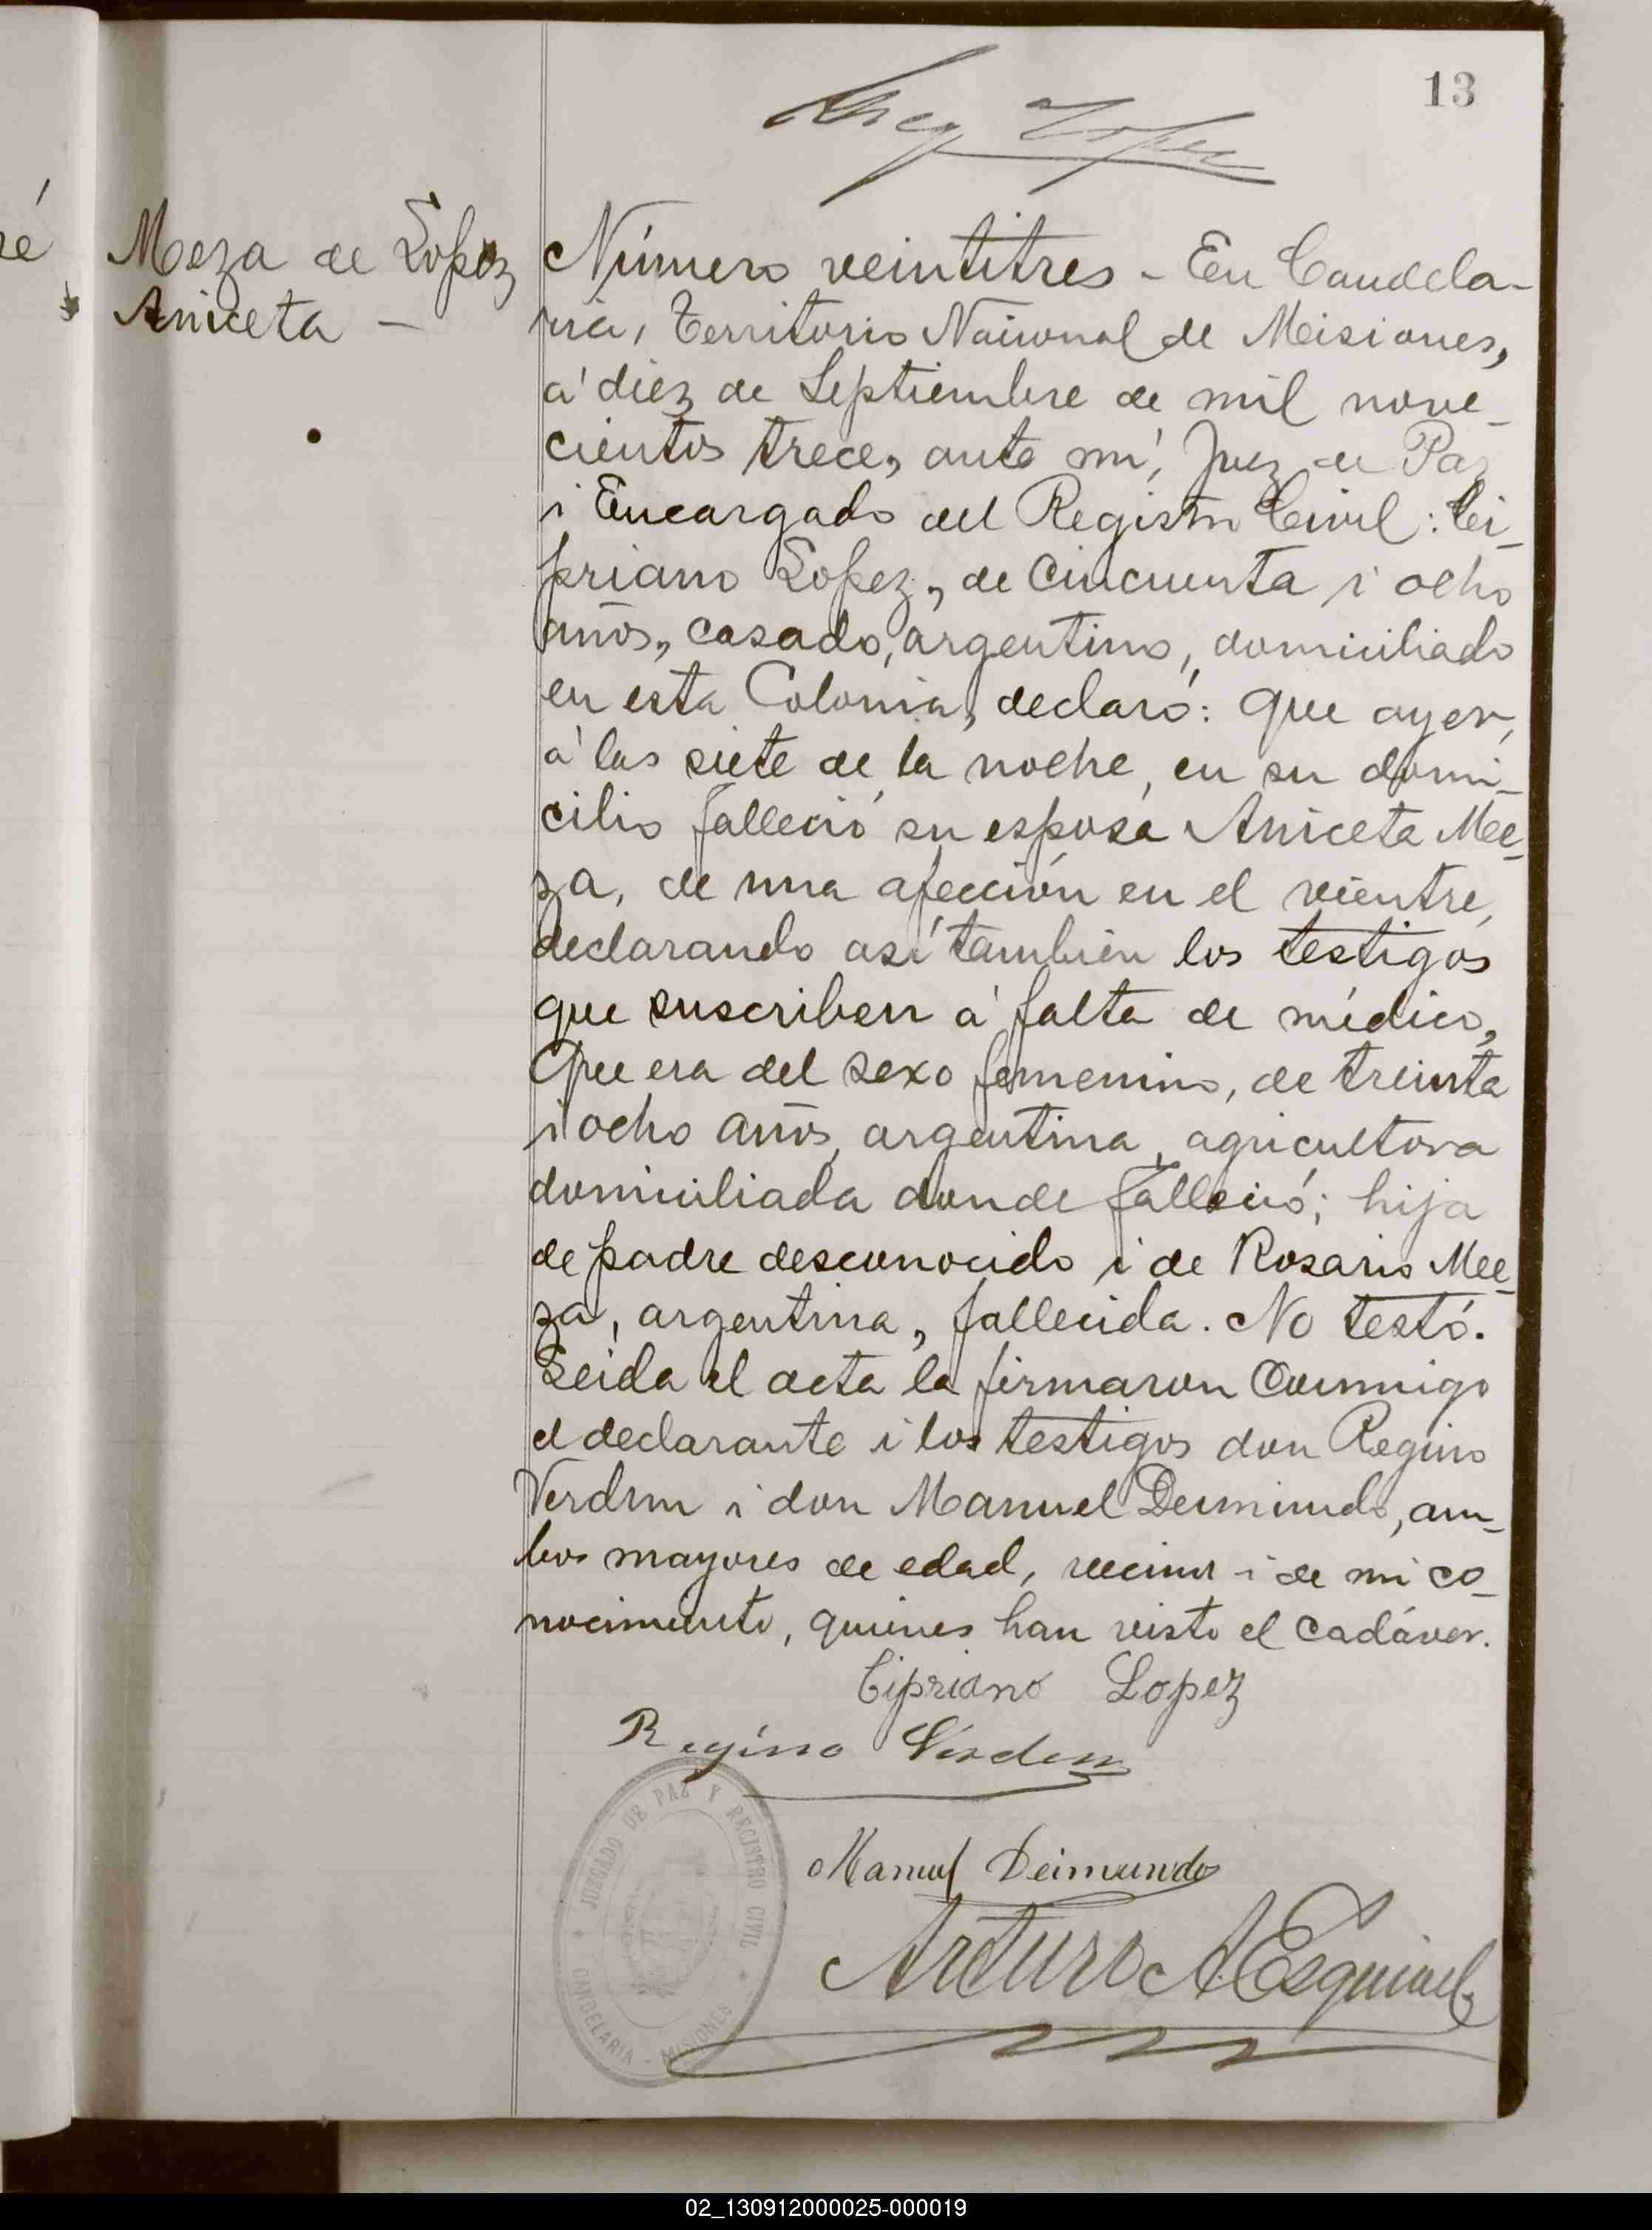 13
Lopez
Meza de Lopez
Aniceta —
Número veintitres - En Candela-
ria, Territorio Nacional de Misiones,
á diez de Septiembre de mil nove-
cientos trece, ante mí, Juez de Paz
i Encargado del Registro Civil: Ci-
priano Lopez, de cincuenta i ocho
años, casado, argentino, domiciliado
en esta Colonia, declaró: Que ayer,
á las siete de la noche, en su domi-
cilio falleció su esposa Aniceta Me-
za, de una afección en el vientre,
declarando así también los testigos
que suscriben á falta de médico,
Que era del sexo femenino, de treinta
i ocho años, argentina, agricultora
domiciliada donde falleció; hija
de padre desconocido i de Rosario Me-
za, argentina, fallecida. No testó.
Leida el acta la firmaron conmigo
el declarante i los testigos don Regino
Verdun i don Manuel Deimundo, am-
bos mayores de edad, vecinos i de mi co-
nocimiento, quienes han visto el cadáver.
Cipriano Lopez
Regino Verdun
Manuel Deimundo
Arturo A Esquivel
JUZGADO DE PAZ Y REGISTRO CIVIL
CANDELARIA - MISIONES
02_130912000025-000019